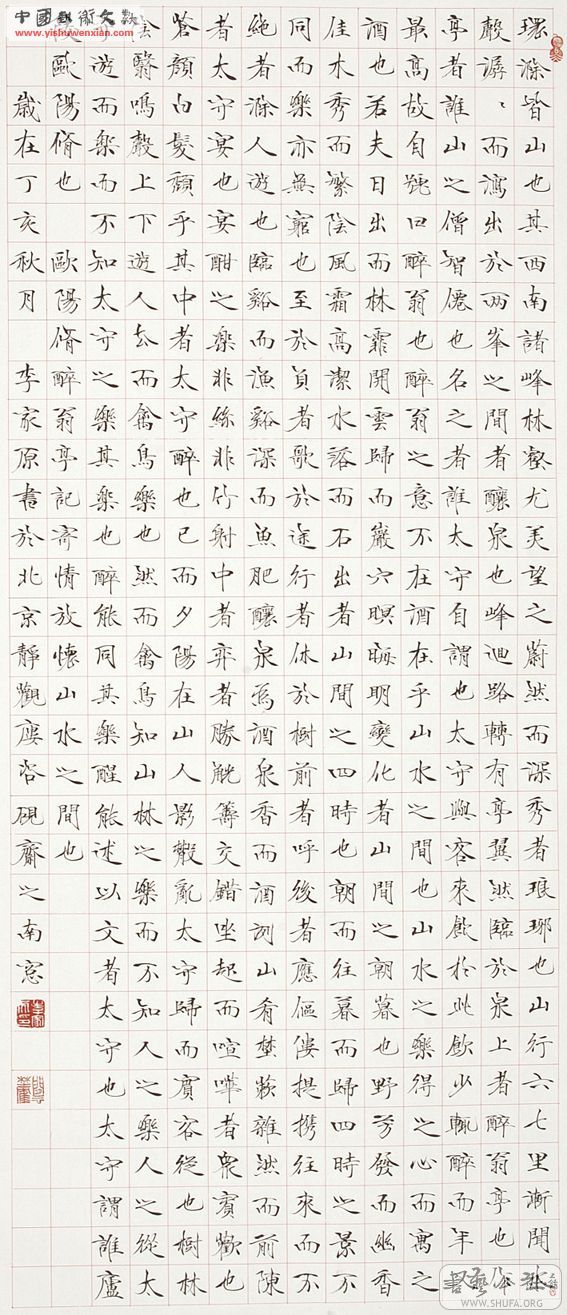 環滁皆山也其西南諸峰林壑尤美望之蔚然而深秀者琅琊也山行六七里漸聞水
聲潺ヽ而瀉出於兩峯之間者釀泉也峰迴路轉有亭翼然臨於泉上者醉翁亭也作
亭者誰山之僧智僊也名之者誰太守自謂也太守與客來飲於此飲少輒醉而年
最高故自號曰醉翁也醉翁之意不在酒在乎山水之間也山水之樂得之心而寓之
酒也若夫日出而林霏開雲歸而巖穴暝晦明變化者山間之朝暮也野芳發而幽香
佳木秀而繁陰風霜高潔水落而石出者山間之四時也朝而往暮而歸四時之景不
同而樂亦無窮也至於負者歌於途行者休於樹前者呼後者應傴僂提攜往來而不
絶者滁人遊也臨谿而漁谿深而魚肥釀泉為酒泉香而酒洌山肴野蔌雜然而前陳
者太守宴也宴酣之樂非絲非竹射中者弈者勝觥籌交錯坐起而喧嘩者衆賓歡也
蒼顏白髮頹乎其中者太守醉也已而夕陽在山人影散亂太守歸而賓客從也樹林
陰翳鳴聲上下遊人去而禽鳥樂也然而禽鳥知山林之樂而不知人之樂人之從太
遊而樂而不知太守之樂其樂也醉能同其樂醒能述以文者太守也太守謂誰廬
陵歐陽脩也 歐陽脩醉翁亭記寄情放懷山水之間也
歲在丁亥秋月 李家原書於北京靜觀廔容硯齋之南窓
中國藝術文献
www.yishuwenxian.com
書藝公社
WWW.SHUFA.ORG